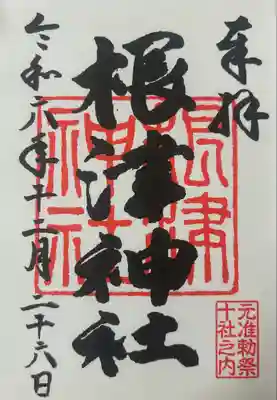 奉拝
根津神社
根津神社
元准勅祭
十社之内
令和六年十二月二十六日